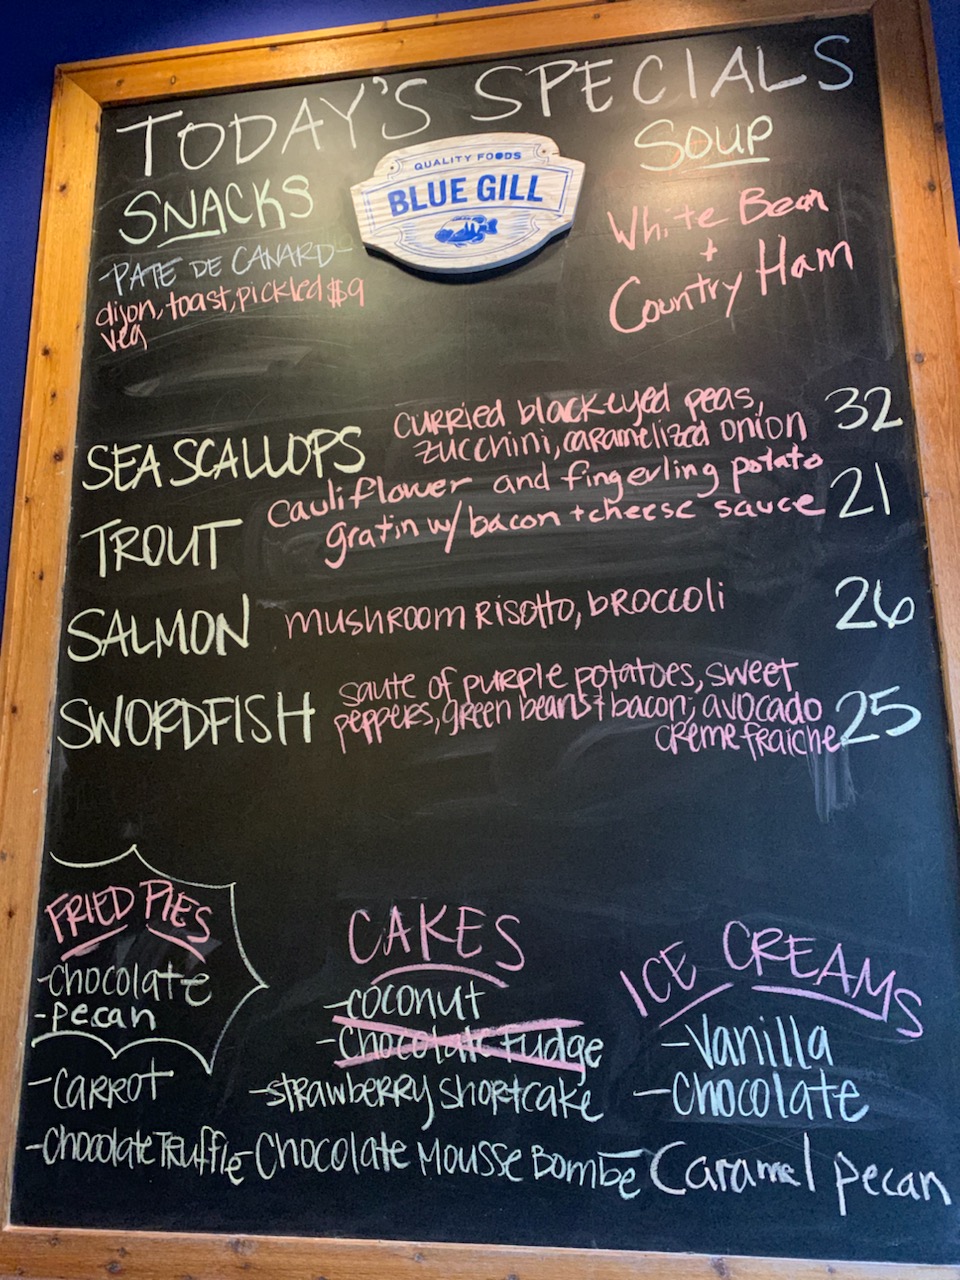 TODAY'S SPECIALS
QUALITY FOODS
BLUE GILL
SNACKS
-PATE DE CANARD-
dijon, toast, pickled $9
veg
SOUP
White Bean
+
Country Ham
SEA SCALLOPS curried blackeyed peas, 32
zucchini, caramelized onion
TROUT cauliflower and fingerling potato 21
gratin w/ bacon + cheese sauce
SALMON mushroom risotto, broccoli 26
SWORDFISH saute of purple potatoes, sweet 25
peppers, green beans + bacon, avocado
creme fraiche
FRIED PIES
-Chocolate
-pecan
CAKES
-coconut
-Chocolate Fudge
-strawberry shortcake
-carrot
-Chocolate Truffle
-Chocolate Mousse Bombe
ICE CREAMS
-Vanilla
-Chocolate
Caramel pecan